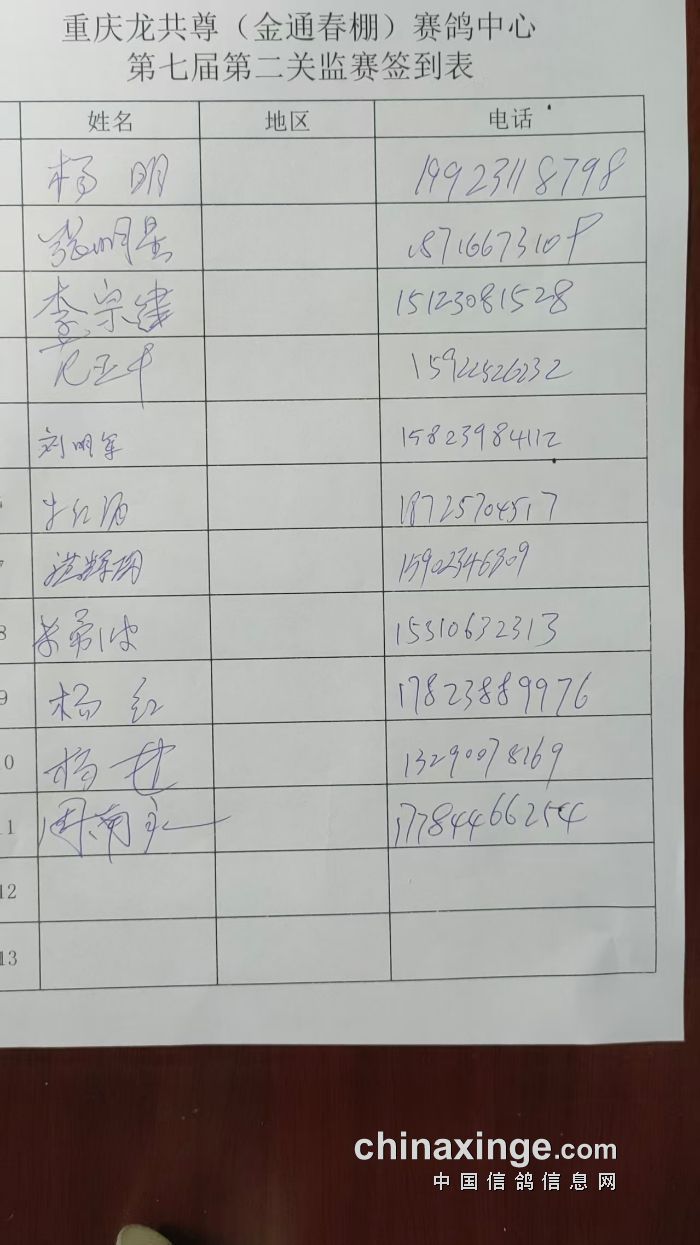 重庆龙共尊（金通春棚）赛鸽中心
第七届第二关监赛签到表
姓名 地区 电话
杨明 19923118798
张明星 18716673109
李宗建 15123081528
15922526232
刘明军 15823984112
18725704517
15902346309
8 15310632313
9 杨红 17823889976
10 杨 13290078169
11 周 17784466254
12
13
chinaxinge.com
中国信鸽信息网